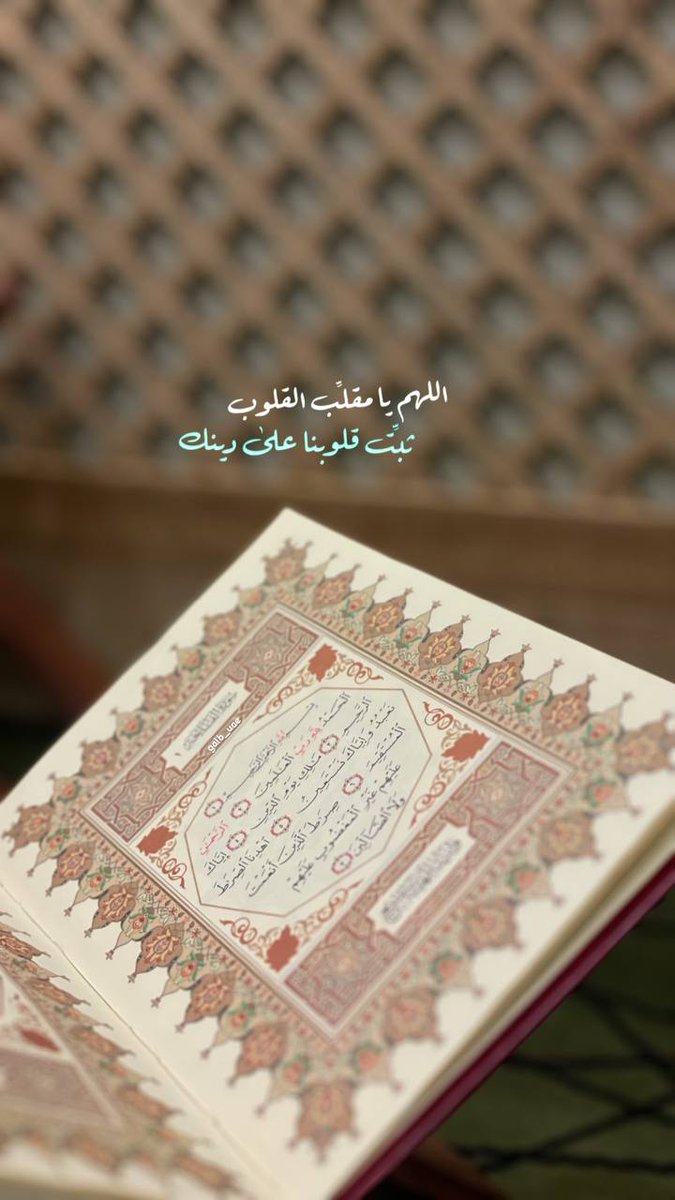 اللهم يا مقلِّب القلوب
ثبِّت قلوبنا علىٰ دينك
galb_uae
بِسْمِ اللَّهِ الرَّحْمَٰنِ الرَّحِيمِ ١
الْحَمْدُ لِلَّهِ رَبِّ الْعَالَمِينَ ٢
الرَّحْمَٰنِ الرَّحِيمِ ٣ مَالِكِ يَوْمِ الدِّينِ ٤ إِيَّاكَ
نَعْبُدُ وَإِيَّاكَ نَسْتَعِينُ ٥ اهْدِنَا الصِّرَاطَ
الْمُسْتَقِيمَ ٦ صِرَاطَ الَّذِينَ أَنْعَمْتَ
عَلَيْهِمْ غَيْرِ الْمَغْضُوبِ عَلَيْهِمْ
وَلَا الضَّالِّينَ ٧